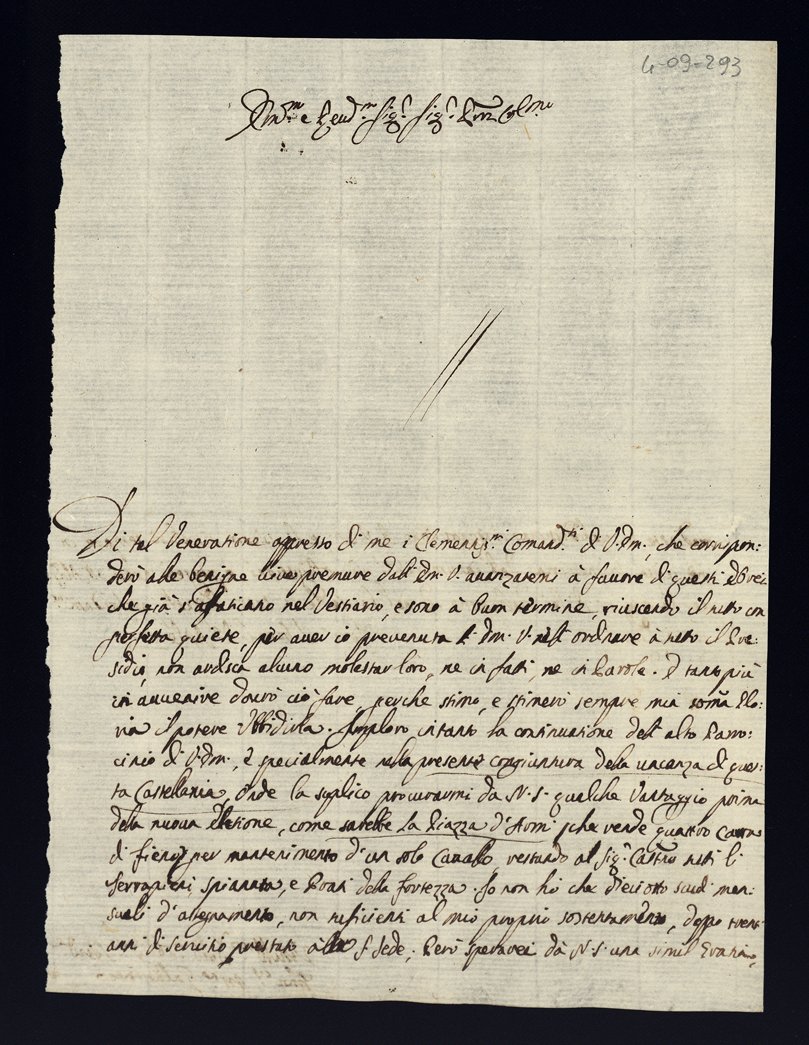 4-09-293
Em.mo e Reud.mo Sig.r Sig.r Prn Col.mo
Di tal Veneratione appresso di me i Clementis.mi Comand.ti di V. Em., che corrispon:
derò alle benigne sue premure dall' Em. V. auanzatemi à fauore di questi Ebrei
che già s'affaticano nel Vestiario, e sono à buon termine, riuscendo il tutto con
perfetta quiete, per auer io preuenuta l'Em. V. nell' ordinare a tutto il Pre:
sidio, non ardisca alcuno molestar loro, ne in fatti, ne in Parole. E tanto più
in auuenire dourò ciò fare, perche stimo, e stimerò sempre mia soma Glo:
ria il potere Vbbidirla. Imploro intanto la continuatione dell' alto Patro:
cinio di V. Em., e specialmente nella presente congiuntura della uacanza di ques:
ta Castellania, onde la supplico procurarmi da N. S. qualche Vantaggio prima
della nuoua Eletione, come sarebbe la Piazza d'Armi, che rende quattro Carra
di fieno, per mantenimento d'un solo Cauallo, restando al Sig.r Castno tutti li
Terrapieni, spianata, e Prati della fortezza. Io non hò che dieciotto scudi men:
suali d'assegnamento, non suficienti al mio proprio sostentamento, doppo trent'
anni di Seruitio prestato alla S. Sede; Però sperarei dà N. S. una simil Gratia,